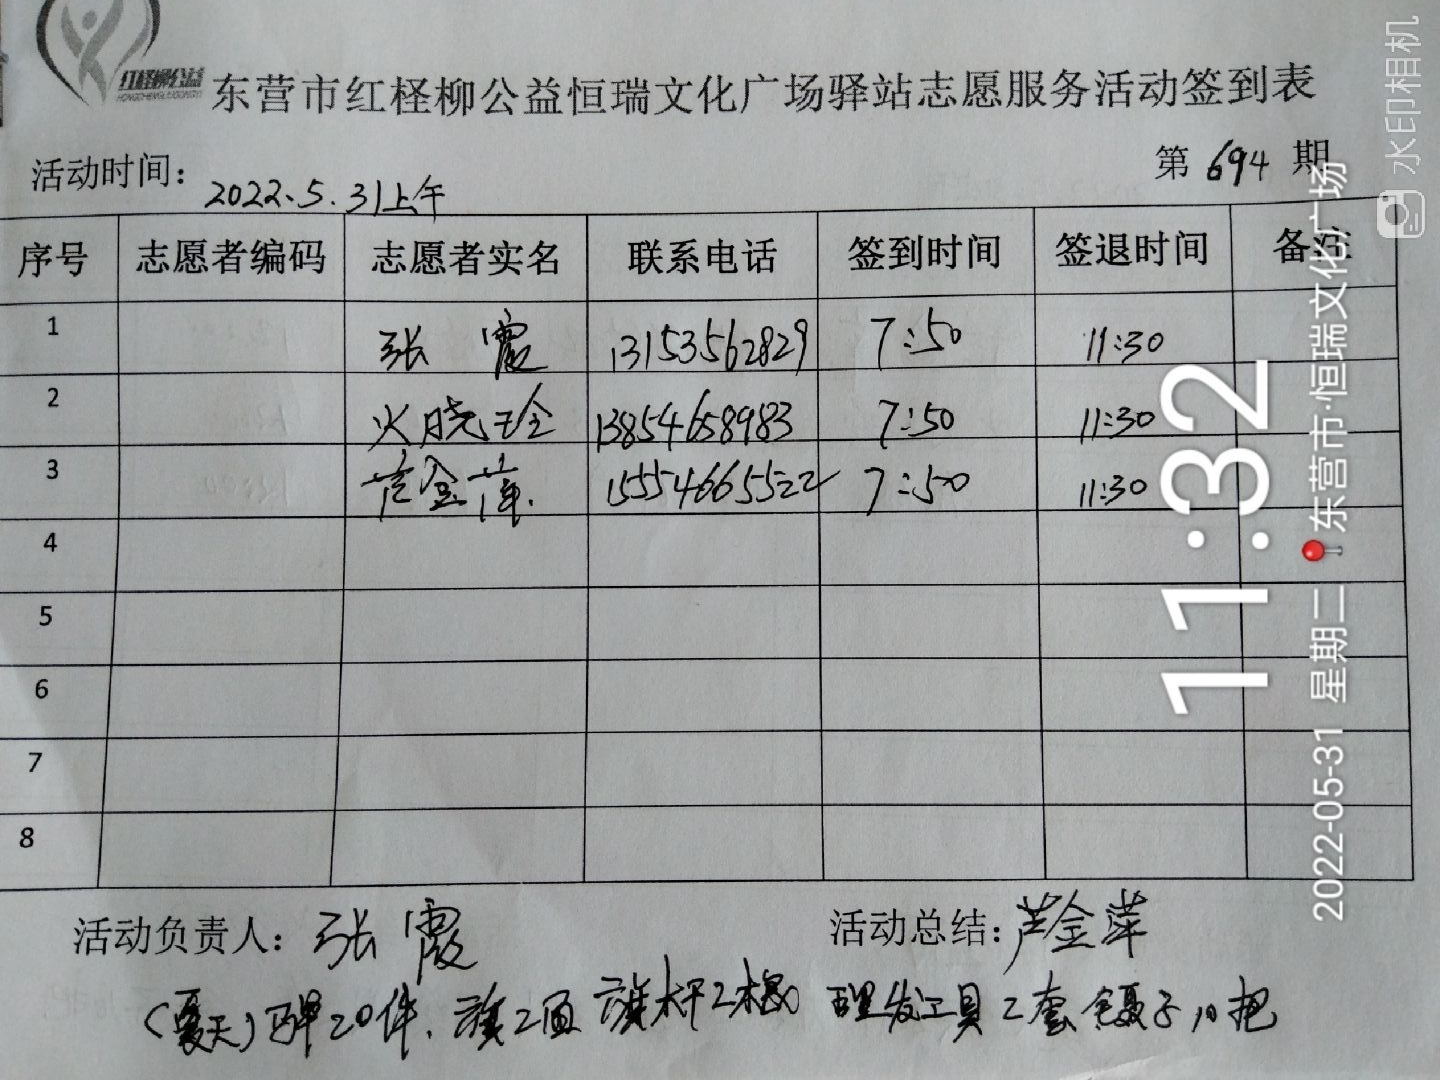 红柽柳公益
东营市红柽柳公益恒瑞文化广场驿站志愿服务活动签到表
活动时间： 2022.5.31上午 第 694 期
序号 志愿者编码 志愿者实名 联系电话 签到时间 签退时间 备注
1 张霞 13153562829 7:50 11:30
2 火晓玲 13854658983 7:50 11:30
3 芦金萍. 15554665522 7:50 11:30
4
5
6
7
8
活动负责人：张霞 活动总结：芦金萍
(夏天)马甲20件、旗2面 旗杆2根 理发工具2套 镊子10把
水印相机
11:32
2022-05-31 星期二 东营市·恒瑞文化广场